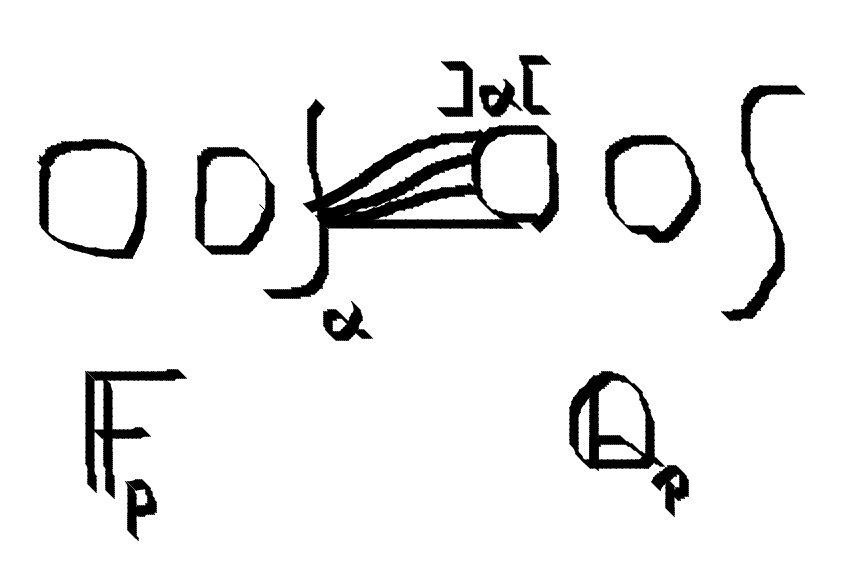 ]α[
α
𝔽ₚ ℚₚ